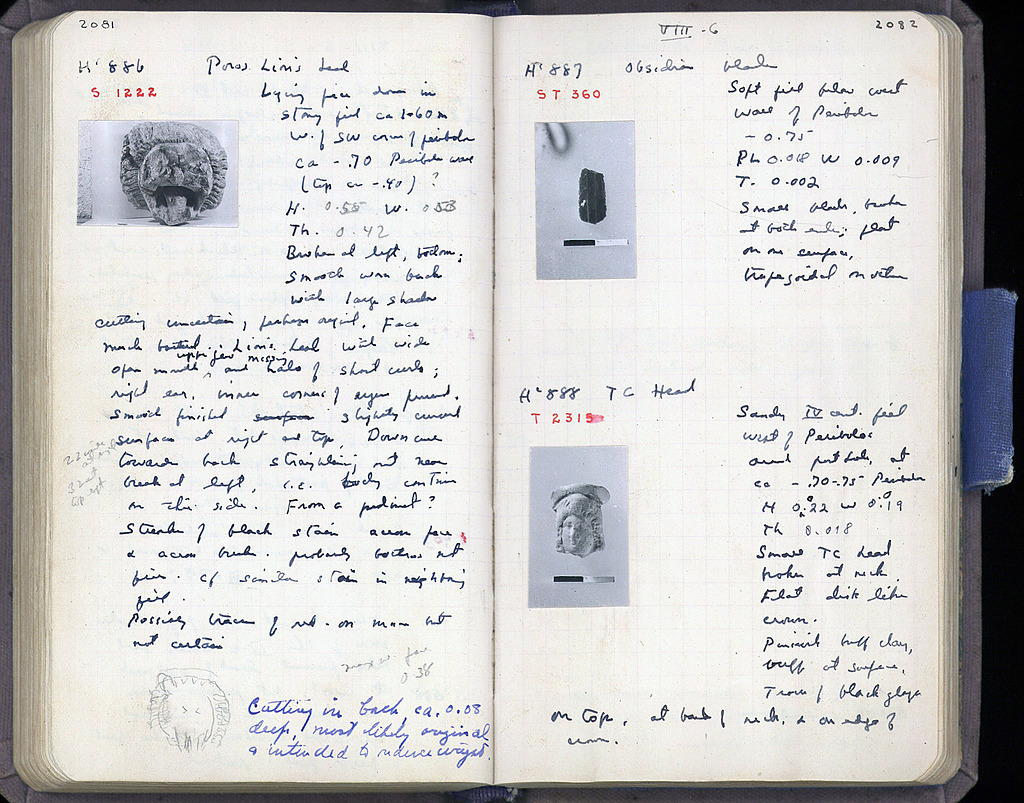 2081
H' 886 Poros Lion's head
S 1222
Lying face down in
stony fill ca 1.60 m
W. of SW corner of peribolos
ca - .70 Peribolos
(top ca -.40) ?
H. 0.55 W. 0.53
Th. 0.42
Broken at left, bottom;
Smooth worn back
with large shallow
cutting uncertain, perhaps original. Face
much battered. Lion's head with wide
upper jaw missing
open mouth, and halo of short curls;
right ear, inner corners of eyes preserved.
Smooth finished surface slightly curved
surface at right and top. Down curve
towards back straightening out near
break at left, i.e. body
on this side. From a pediment?
Streaks of black stain across face
& across break. probably bothros not
fire. cf similar stain in neighboring
fill.
Possibly traces of red on mane but
not certain
max w. face
0 38
Cutting in back ca. 0.08
deep, most likely original
& intended to reduce weight.
VIII - 6 2082
H' 887 Obsidian blade
ST 360
Soft fill below west
wall of Peribolos
- 0.75
PL 0.018 W 0.009
T. 0.002
Small blade, broken
at both ends; flat
on one surface,
trapezoidal on other
H' 888 TC Head
T 2315
Sandy IV cent. fill
west of Peribolos
around post hole, at
ca - .70-75 Peribolos
H 0.22 W 0.19
Th 0.018
Small TC head
broken at neck.
Flat disk like
crown.
Pinkish buff clay,
buff at surface,
Traces of black glaze
on top, at back of neck, & on edge of
crown.